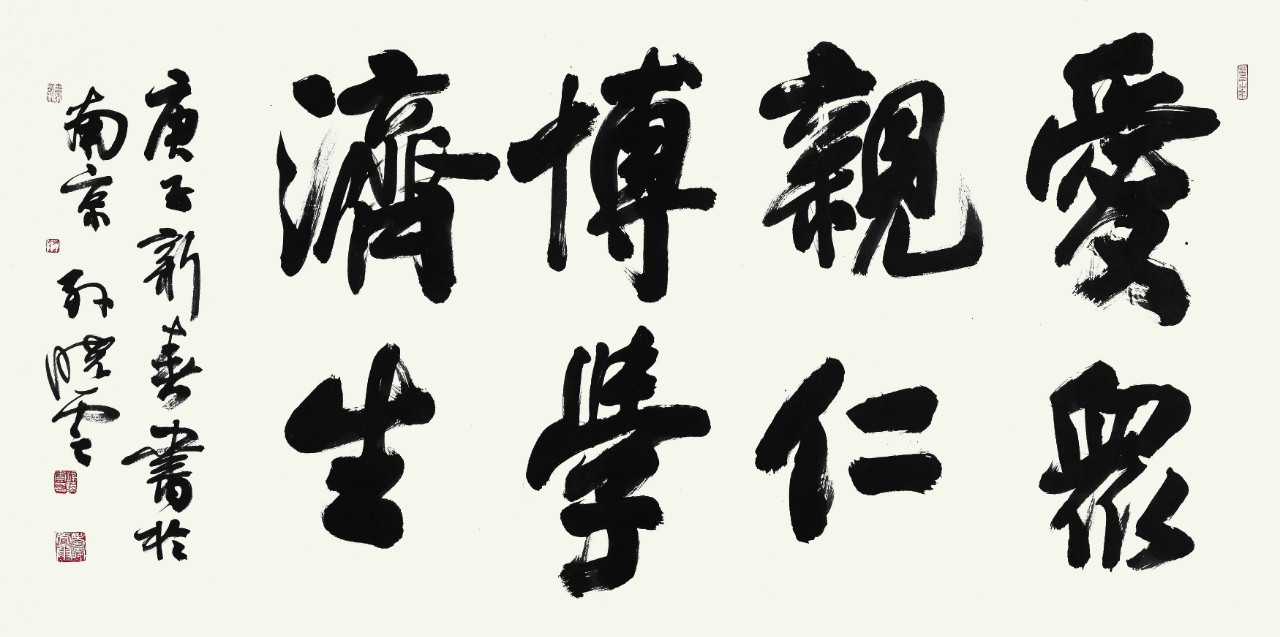 愛眾
親仁
博學
濟生
庚子新春書於
南京 孙曉雲